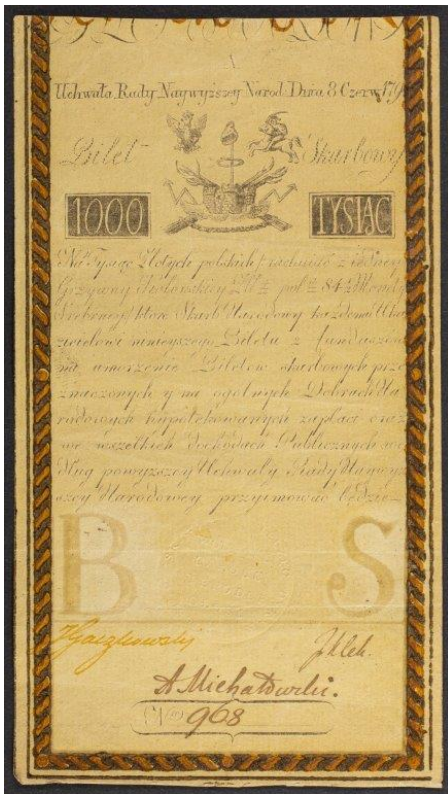 Uchwała Rady Naywyższey Narod: Dnia 8 Czerw: 179
Bilet Skarbowy
1000 TYSIĄC
Na Tysiąc Złotych polskich rachuiąc z iedney
Grzywny Kolońskiey pol 84½ Monety
Srebrney, które Skarb Narodowy każdemu Oka
zicielowi ninieyszego Biletu z funduszow
na amorzenie Biletow skarbowych prze
znaczonych y na ogólnych Dobrach Na
rodowych hypotekowanych zapłaci oraz
we wszelkich dochodach Publicznych we
dług powyższey Uchwały Rady Naywyż
szey Narodowey przyimować będzie
B S
A Michałowski.
968